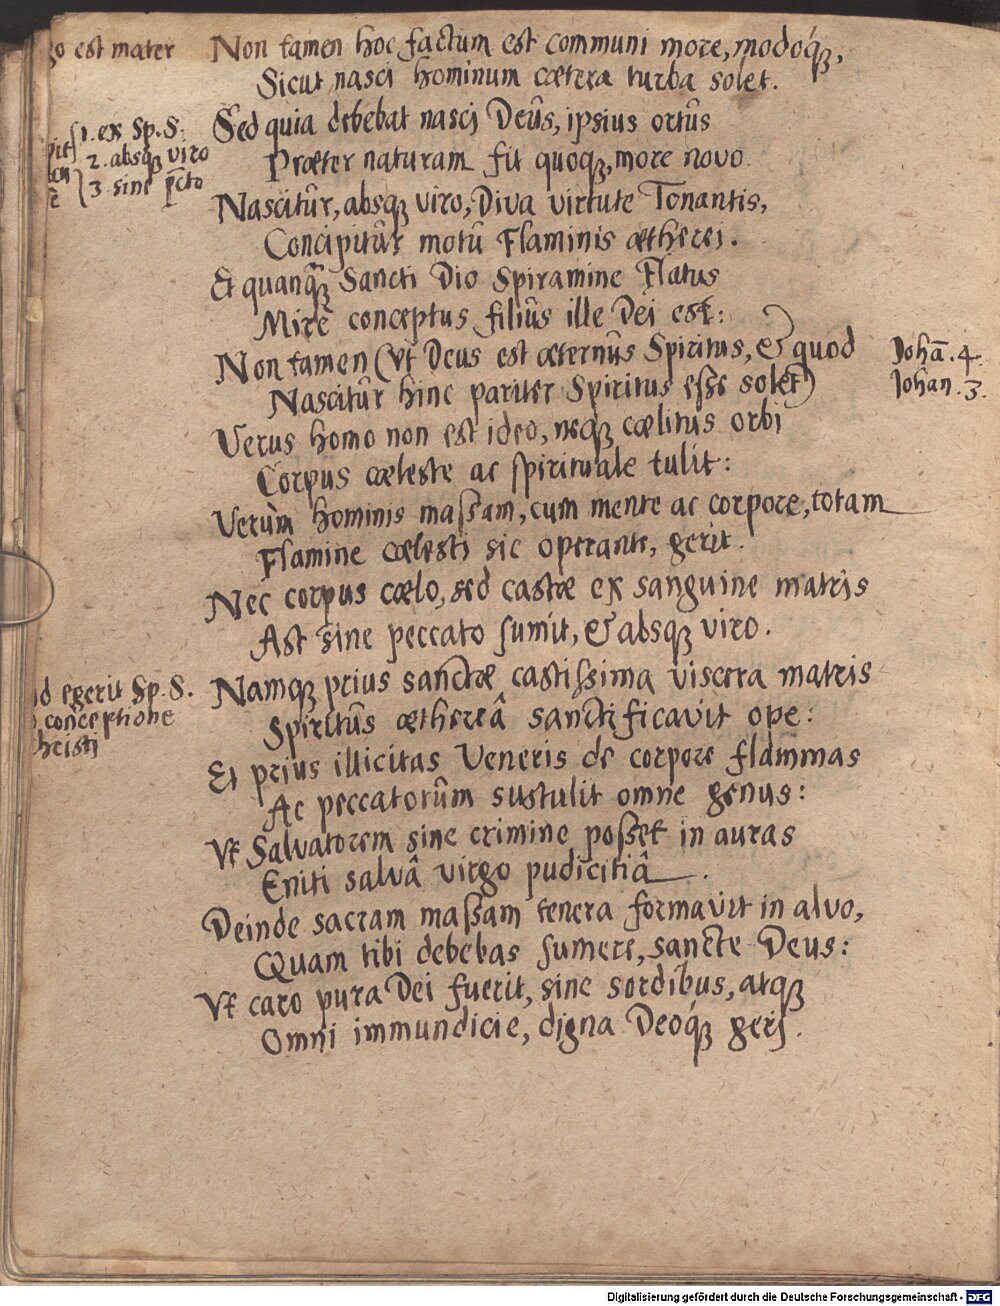 go est mater
Non tamen hoc factum est communi more, modoq́ꝫ,
Sicut nasci hominum cætera turba solet.
1. ex Sp. S.
2. absqꝫ viro
3. sine pcto
Sed quia debebat nascj Deûs, ipsius ortûs
Præter naturam fit quoqꝫ, more novo.
Nascitûr, absqꝫ viro, Diva virtute Tonantis,
Concipitûr motû Flaminis ætherei.
Et quanqꝫ̃ Sancti Dio Spiramine Flatus
Mirè conceptus filiûs ille Dei est:
Non tamen (Vt Deus est æternûs Spiritus, & quod
Nascitûr hinc pariter Spiritus esse solet)
Johã. 4.
Johan. 3.
Verus homo non est ideo, neqꝫ cælitus orbi
Corpus cæleste ac spirituale tulit:
Verùm hominis massam, cum mente ac corpore, totam
Flamine cælesti sic operante, gerit.
Nec corpus cælo, sed castæ ex sanguine matris
Ast sine peccato sumit, & absqꝫ viro.
Namqꝫ prius sanctæ castissima viscera matris
Spiritûs æthereâ sanctificavit ope:
id egerit Sp. S.
conceptione
Christi
Et prius illicitas Veneris de corpore flammas
Ac peccatorûm sustulit omne genus:
Vt Salvatorem sine crimine posset in auras
Eniti salvâ virgo pudicitiâ.
Deinde sacram massam tenera formavit in alvo,
Quam tibi debebas sumere, sancte Deus:
Vt caro pura Dei fuerit, sine sordibus, atqꝫ
Omni immundicie, digna Deoq́ꝫ gerj.
Digitalisierung gefördert durch die Deutsche Forschungsgemeinschaft - DFG